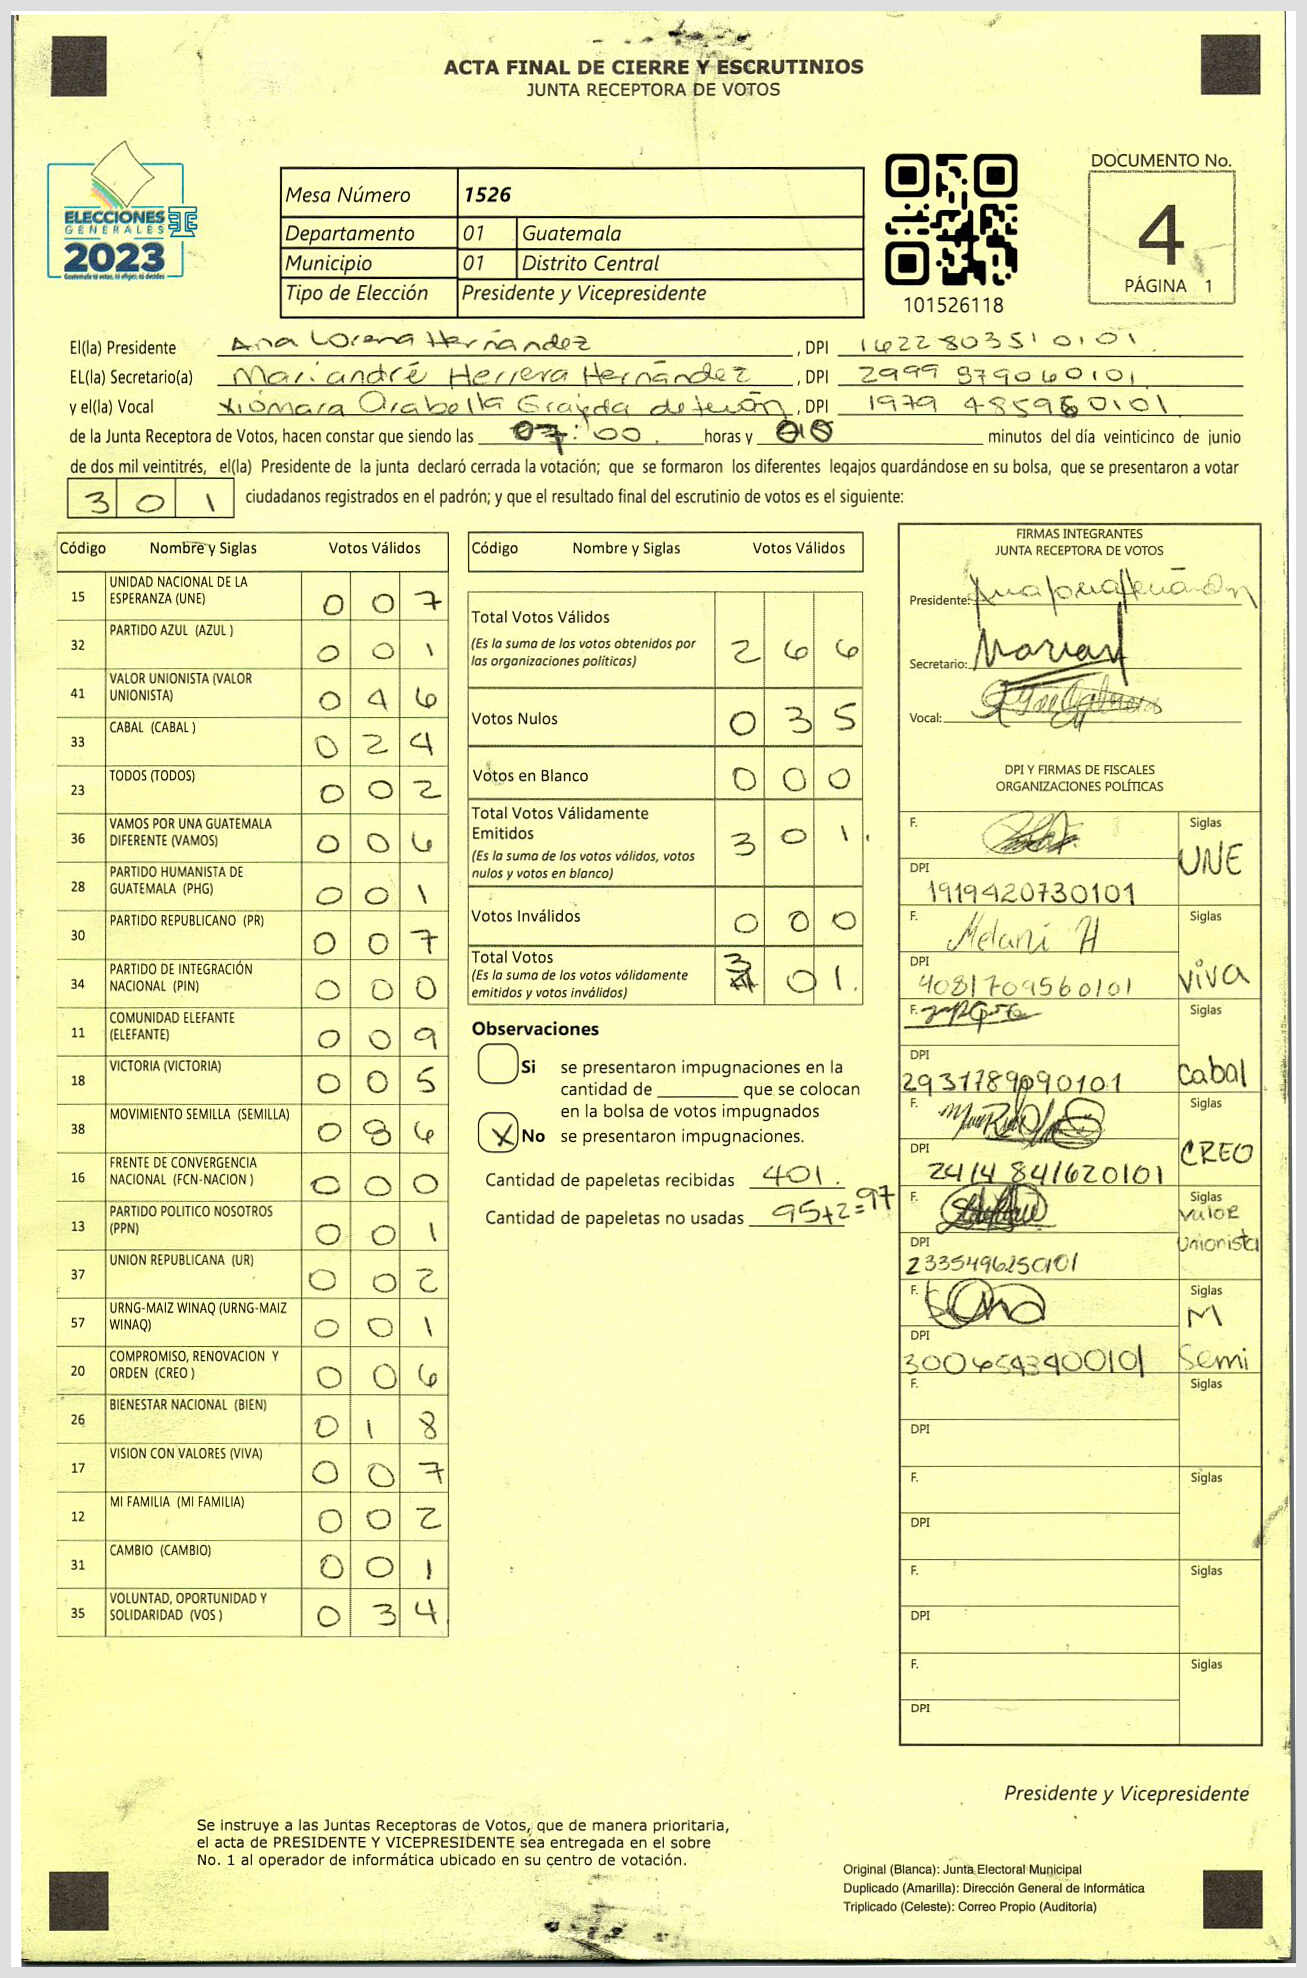 ACTA FINAL DE CIERRE Y ESCRUTINIOS
JUNTA RECEPTORA DE VOTOS
ELECCIONES
GENERALES
2023
Mesa Número 1526
Departamento 01 Guatemala
Municipio 01 Distrito Central
Tipo de Elección Presidente y Vicepresidente
101526118
DOCUMENTO No.
4
PÁGINA 1
El(la) Presidente Ana Lorena Hernández, DPI 1622 80351 0101
EL(la) Secretario(a) Mariandré Herrera Hernández, DPI 2999 379060101
y el(la) Vocal Xiomara Orabella Grajeda de, DPI 1979
de la Junta Receptora de Votos, hacen constar que siendo las 07:00 horas y minutos del día veinticinco de junio
de dos mil veintitrés, el(la) Presidente de la junta declaró cerrada la votación; que se formaron los diferentes legajos guardándose en su bolsa, que se presentaron a votar
301 ciudadanos registrados en el padrón; y que el resultado final del escrutinio de votos es el siguiente:
Código Nombre y Siglas Votos Válidos
15 UNIDAD NACIONAL DE LA ESPERANZA (UNE) 0 0 7
32 PARTIDO AZUL (AZUL ) 0 0 1
41 VALOR UNIONISTA (VALOR UNIONISTA) 0 4 6
33 CABAL (CABAL ) 0 2 4
23 TODOS (TODOS) 0 0 2
36 VAMOS POR UNA GUATEMALA DIFERENTE (VAMOS) 0 0 6
28 PARTIDO HUMANISTA DE GUATEMALA (PHG) 0 0 1
30 PARTIDO REPUBLICANO (PR) 0 0 7
34 PARTIDO DE INTEGRACIÓN NACIONAL (PIN) 0 0 0
11 COMUNIDAD ELEFANTE (ELEFANTE) 0 0 9
18 VICTORIA (VICTORIA) 0 0 5
38 MOVIMIENTO SEMILLA (SEMILLA) 0 8 6
16 FRENTE DE CONVERGENCIA NACIONAL (FCN-NACION ) 0 0 0
13 PARTIDO POLITICO NOSOTROS (PPN) 0 0 1
37 UNION REPUBLICANA (UR) 0 0 2
57 URNG-MAIZ WINAQ (URNG-MAIZ WINAQ) 0 0 1
20 COMPROMISO, RENOVACION Y ORDEN (CREO ) 0 0 6
26 BIENESTAR NACIONAL (BIEN) 0 1 8
17 VISION CON VALORES (VIVA) 0 0 7
12 MI FAMILIA (MI FAMILIA) 0 0 2
31 CAMBIO (CAMBIO) 0 0 1
35 VOLUNTAD, OPORTUNIDAD Y SOLIDARIDAD (VOS ) 0 3 4
Código Nombre y Siglas Votos Válidos
Total Votos Válidos 2 6 6
(Es la suma de los votos obtenidos por
las organizaciones políticas)
Votos Nulos 0 3 5
Votos en Blanco 0 0 0
Total Votos Válidamente
Emitidos 3 0 1.
(Es la suma de los votos válidos, votos
nulos y votos en blanco)
Votos Inválidos 0 0 0
Total Votos 3 0 1.
(Es la suma de los votos válidamente
emitidos y votos inválidos)
Observaciones
Si se presentaron impugnaciones en la
cantidad de ________ que se colocan
en la bolsa de votos impugnados
X No se presentaron impugnaciones.
Cantidad de papeletas recibidas 401.
Cantidad de papeletas no usadas 95+2=97
FIRMAS INTEGRANTES
JUNTA RECEPTORA DE VOTOS
Presidente:
Secretario:
Vocal:
DPI Y FIRMAS DE FISCALES
ORGANIZACIONES POLÍTICAS
F. Siglas
UNE
DPI
1919420730101
F. Melani H Siglas
DPI viva
4081709560101
F. Siglas
DPI cabal
2931789090101
F. Siglas
DPI CREO
2414 841620101
F. Siglas
valor
DPI unionista
2335496250101
F. Siglas
M
DPI
3006543400101 Semi
F. Siglas
DPI
F. Siglas
DPI
F. Siglas
DPI
F. Siglas
DPI
Presidente y Vicepresidente
Se instruye a las Juntas Receptoras de Votos, que de manera prioritaria,
el acta de PRESIDENTE Y VICEPRESIDENTE sea entregada en el sobre
No. 1 al operador de informática ubicado en su centro de votación.
Original (Blanca): Junta Electoral Municipal
Duplicado (Amarilla): Dirección General de Informática
Triplicado (Celeste): Correo Propio (Auditoria)